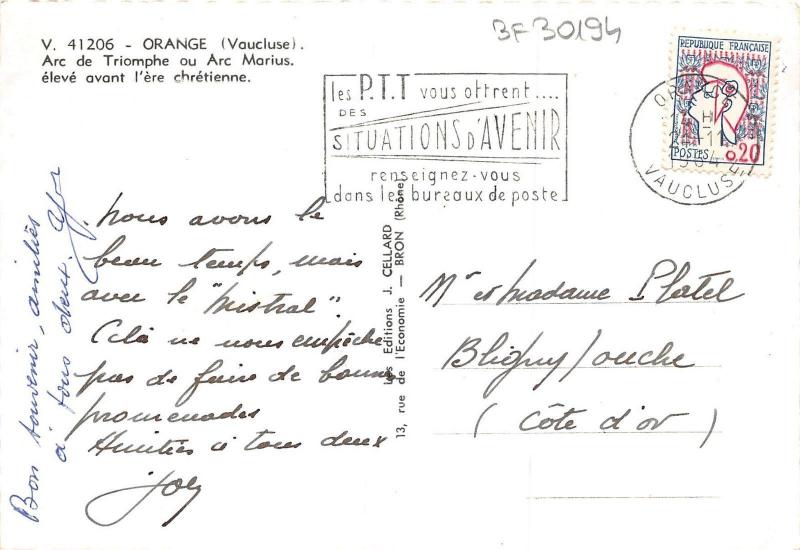 BF30194
V. 41206 - ORANGE (Vaucluse).
Arc de Triomphe ou Arc Marius.
élevé avant l'ère chrétienne.
les P.T.T vous offrent....
DES
SITUATIONS D'AVENIR
renseignez-vous
dans les bureaux de poste
REPUBLIQUE FRANÇAISE
POSTES 0,20
1964
VAUCLUSE
Nous avons le
beau temps, mais
avec le "Mistral".
Cela ne nous empêche
pas de faire de bonnes
promenades
Amitiés à tous deux
Bon souvenir, amitiés
à tous deux.
Les Editions J. CELLARD
13, rue de l'Economie — BRON (Rhône)
Mr et Madame Platel
Bligny/ouche
(Côte d'or)